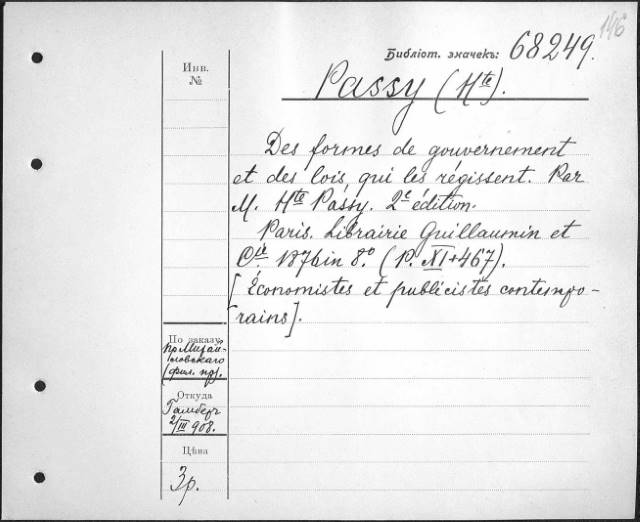 146
Библіот. значекъ: 68249.
Passy (Hte).
Инв.
№
Des formes de gouvernement
et des lois, qui les régissent. Par
M. Hte Passy. 2e édition.
Paris. Librairie Guillaumin et
Cie 1876 in 8.º (P. XI+467).
[Économistes et publicistes contempo-
rains].
По заказу
пр. Михай-
ловскаго
Откуда
Гамберъ
2/III 908.
Цѣна
3р.